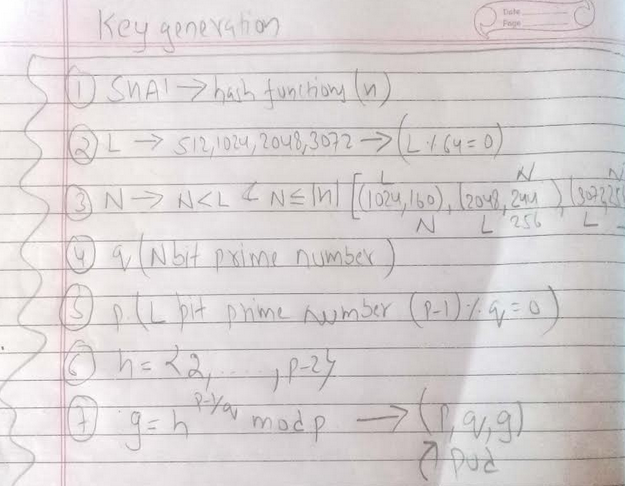 Date
Page
Key generation
① SHA1 → hash functions (n)
② L → 512,1024,2048,3072 → (L % 64 = 0)
L N N
③ N → N<L & N≤|n| [(1024,160), (2048,244 ), (3072,25
N L 256 L
④ q (N bit prime number)
⑤ p (L bit prime number (P-1) % q = 0)
⑥ h = {2, ....... , p-2}
⑦ g = h^{p-1/q} mod p → (p, q, g)